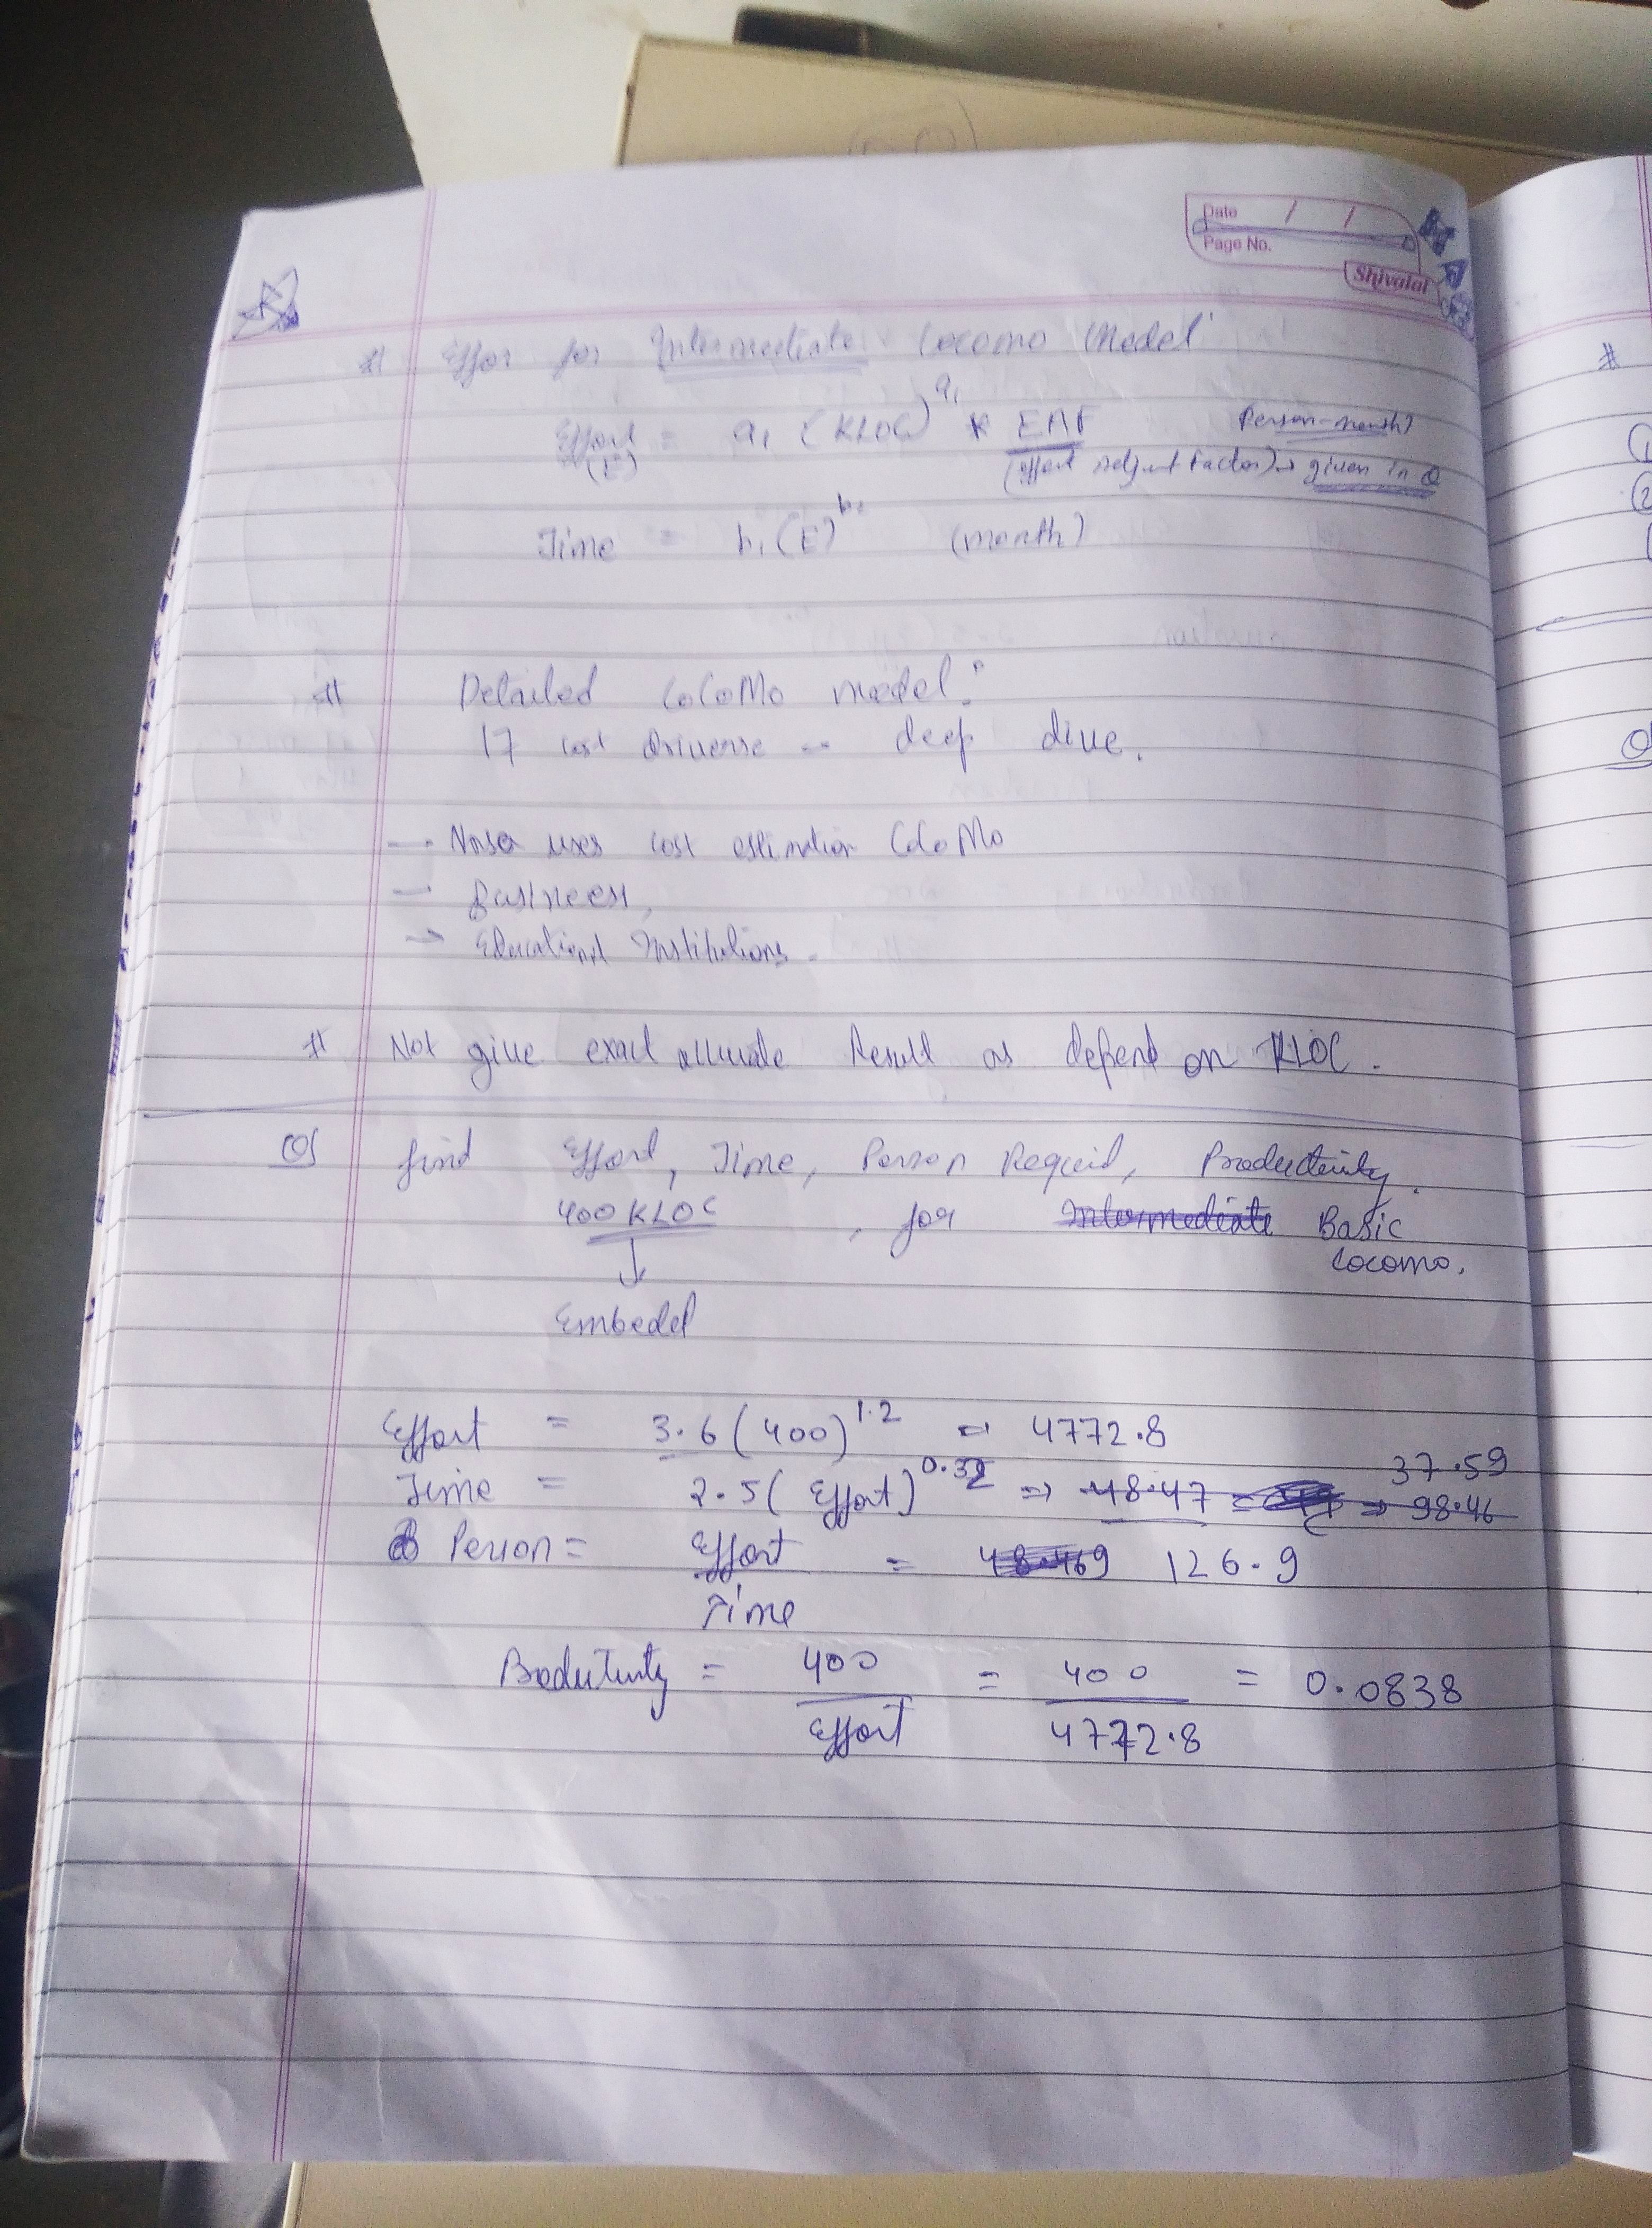 Date / /
Page No.
Shivalal
# Effor for Intermediate Cocomo Model
Effort = a1 (KLOC)^a1 * EAF Person-month)
(E) (Effort Adjut Factor) → given in Q
Time = b1 (E)^b2 (month)
# Detailed CoCoMo model:
17 cost deep dive.
uses cost CoCoMo
— Business,
→ Educational Institutions.
# Not give exact accurate Result as depend on KLOC.
Q) find Effort, Time, Person Requid, Productivity.
400 KLOC , for Intermediate Basic
Cocomo.
↓
Embedd
Effort = 3.6 (400)^1.2 => 4772.8
37.59
Time = 2.5 (Effort)^0.32 => 48.47 = => 98.46
Person = Effort = 48.469 126.9
Time
Productivity = 400 = 400 = 0.0838
Effort 4772.8